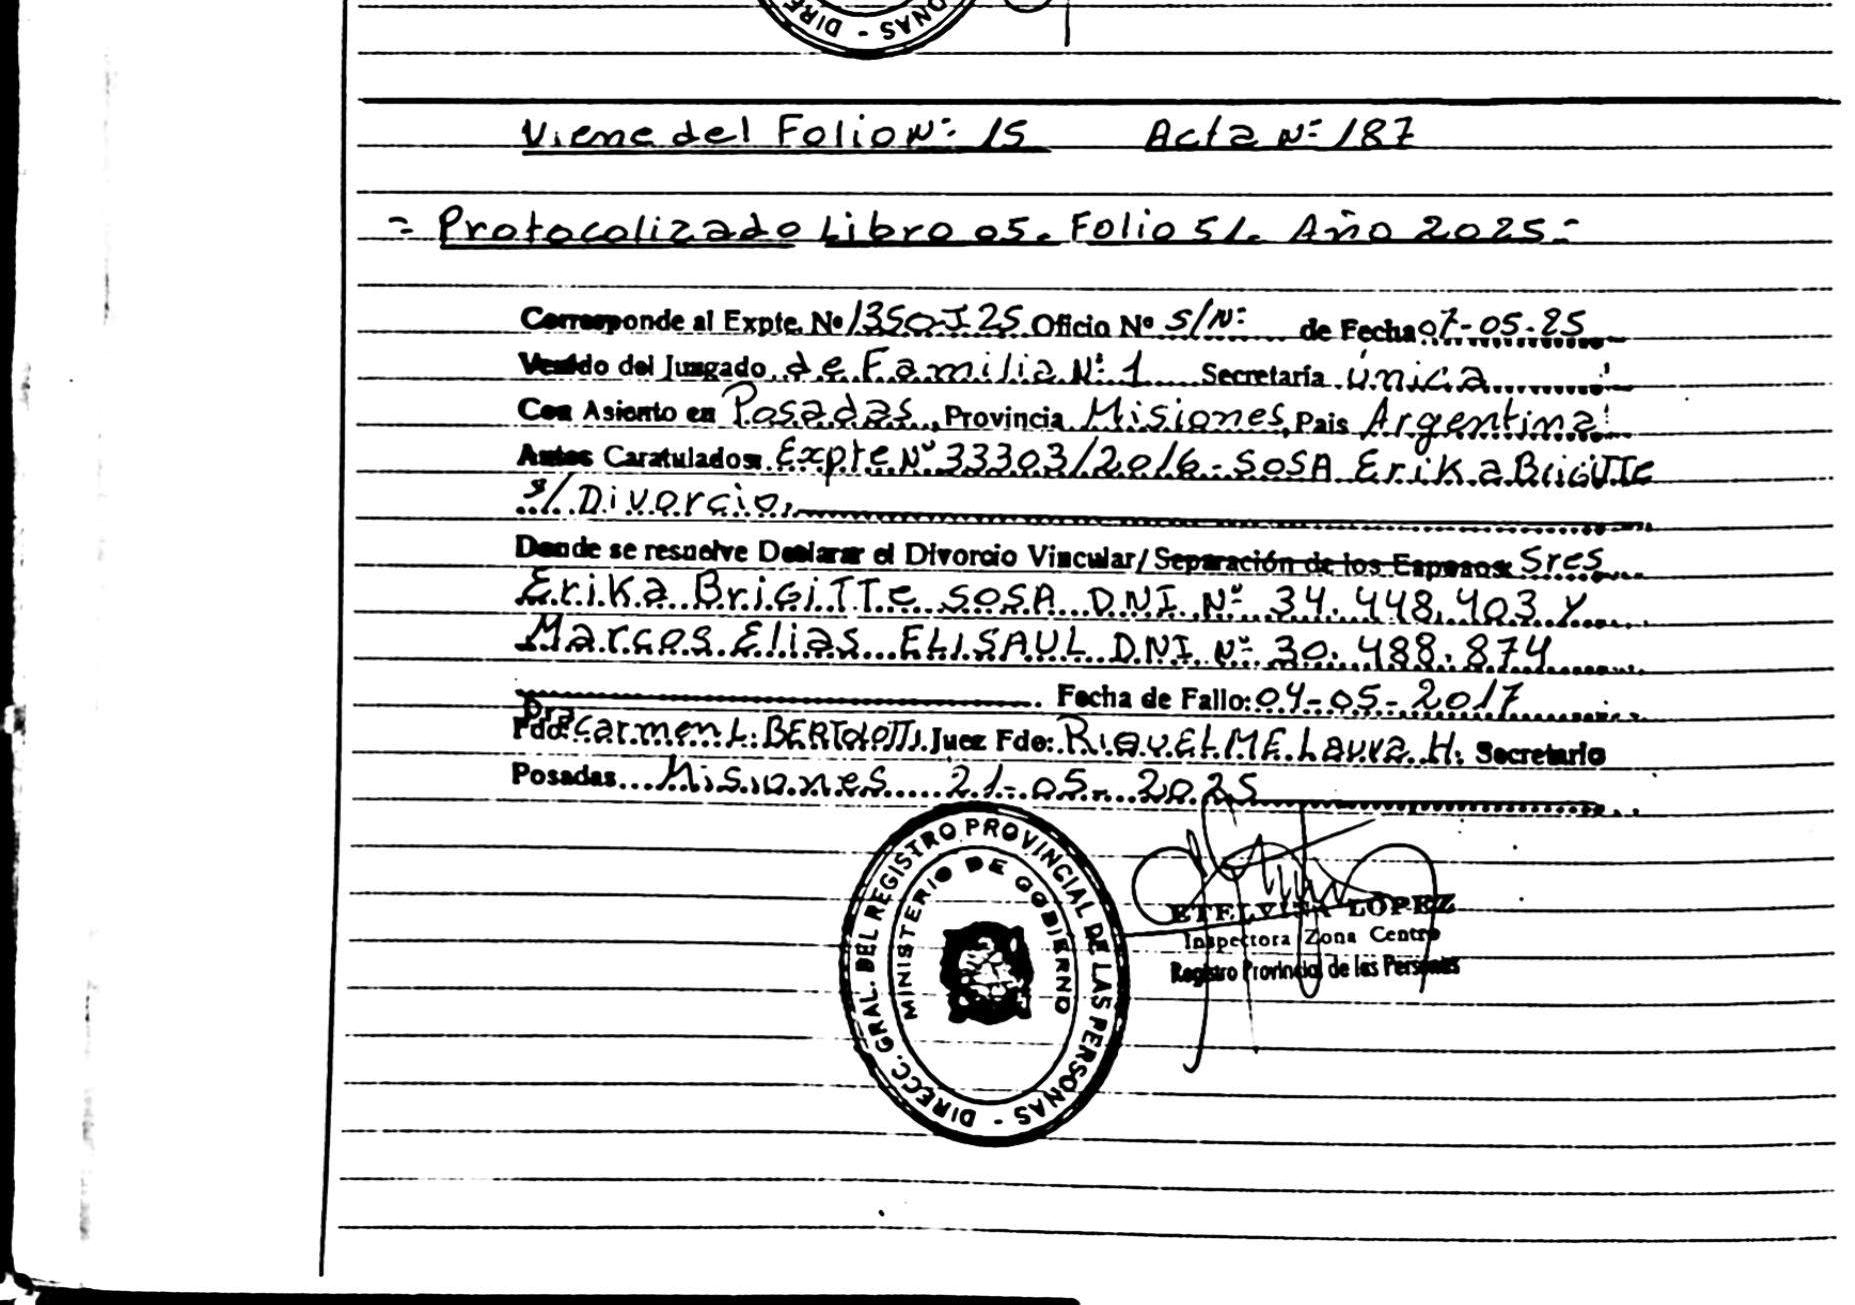 DIRE
ONAS -
Viene del Folio Nº 15 Acta Nº 187
= Protocolizado Libro 05. Folio 51. Año 2025=
Corresponde al Expte. Nº 1350-J-25 Oficio Nº S/Nº de Fecha 07-05-25
Venido del Juzgado de Familia Nº 1 Secretaría Única
Con Asiento en Posadas, Provincia Misiones, Pais Argentina
Autos Caratulados: Expte Nº 33303/2016 - SOSA Erika BriGiTTe
s/ Divorcio,
Donde se resuelve Declarar el Divorcio Vincular/Separación de los Esposos: Sres
Erika BriGiTTe SOSA DNI Nº 34.448.403 y
Marcos Elias ELISAUL DNI Nº 30.488.874
Fecha de Fallo: 04-05-2017
Fdo: Dra Carmen L. BERTOLOTTI Juez Fdo: RIQUELME Laura H. Secretario
Posadas Misiones 21-05-2025
DIRECC. GRAL. DEL REGISTRO PROVINCIAL DE LAS PERSONAS -
MINISTERIO DE GOBIERNO
ETELVINA LOPEZ
Inspectora Zona Centro
Registro Provincial de las Personas